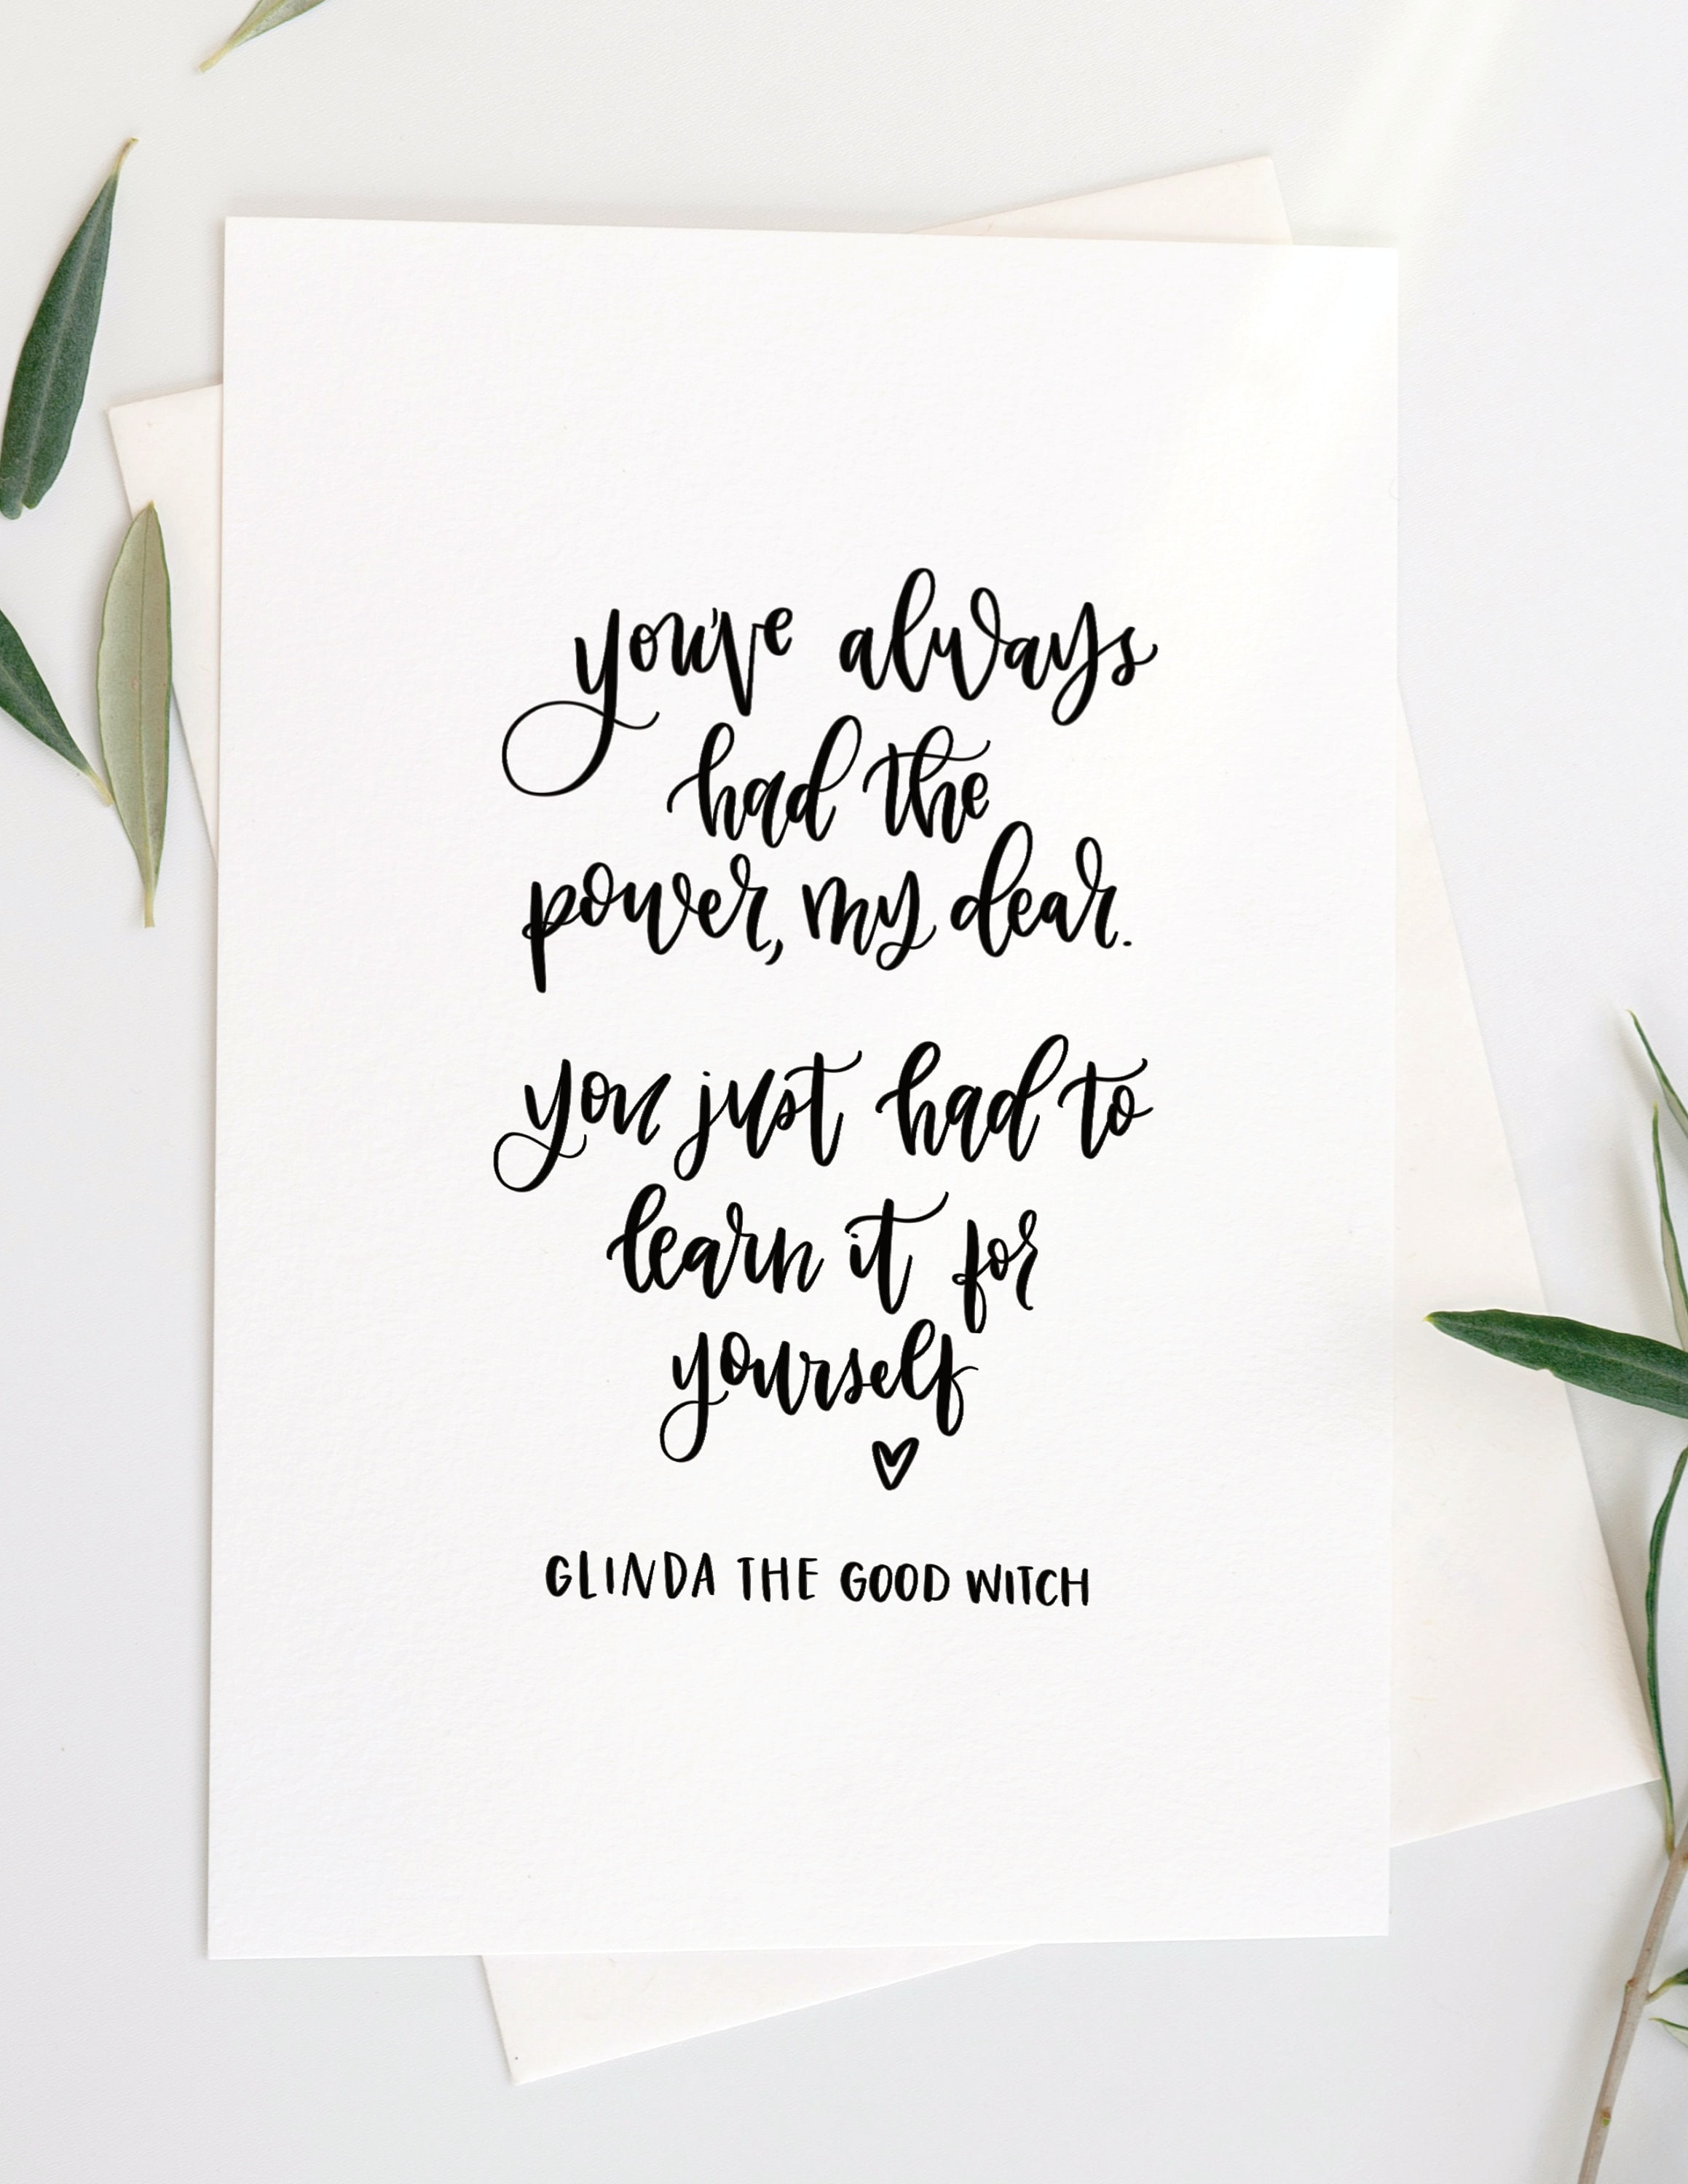 you've always
had the
power, my dear.
you just had to
learn it for
yourself
GLINDA THE GOOD WITCH